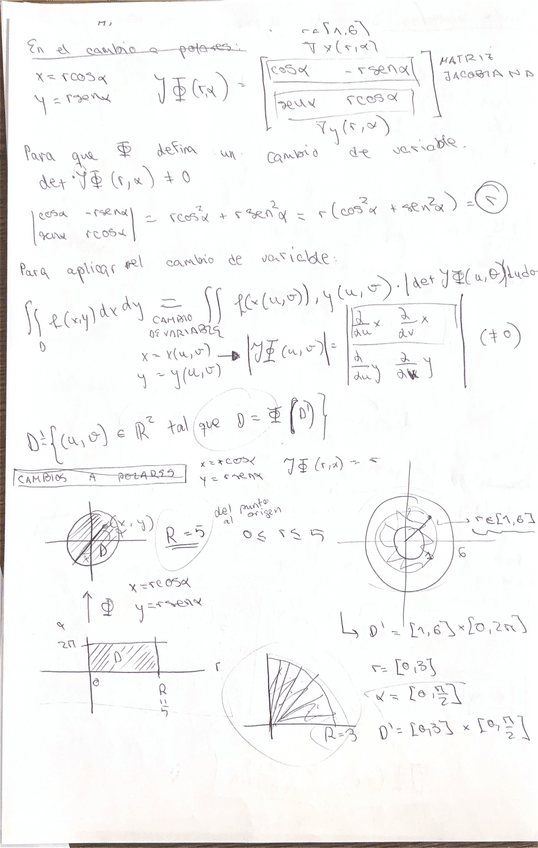 r∈[1,6]
En el cambio a polares:
∇x(r,α)
x = rcosα
y = rsenα
JΦ(r,α) = [cosα -rsenα
senα rcosα]
MATRIZ JACOBIANA
∇y(r,α)
Para que Φ defina un cambio de variable.
det JΦ(r,α) ≠ 0
|cosα -rsenα
senα rcosα| = rcos²α + rsen²α = r(cos²α + sen²α) = r
Para aplicar el cambio de variable:
∬_D f(x,y)dxdy = ∬ f(x(u,v)), y(u,v)·|det JΦ(u,v)|dudv
CAMBIO DE VARIABLE
x = x(u,v)
y = y(u,v)
→ |JΦ(u,v)| = |∂/∂u x ∂/∂v x
∂/∂u y ∂/∂v y| (≠0)
D'={(u,v) ∈ ℝ² tal que D = Φ(D')}
CAMBIOS A POLARES
x = rcosα
y = rsenα
JΦ(r,α) = r
(x,y)
D
R=5
del punto al origen
0 ≤ r ≤ 5
r∈[1,6]
1
6
↑ Φ
x = rcosα
y = rsenα
α
2π
D'
0
R = 5
r
↳ D' = [1,6] × [0,2π]
r = [0,3]
α = [0,π/2]
R=3
D' = [0,3] × [0,π/2]